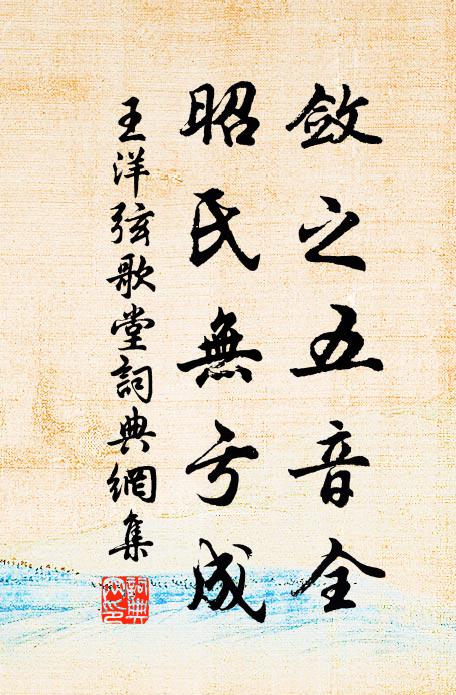 斂之五音全
昭氏無亏成
王洋弦歌堂詞典網集